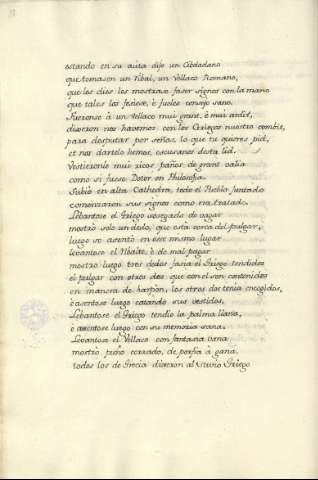 estando en su cuita dijo un Cibdadano
que tomasen un Ribal, un Vellaco Romano,
que les dies les mostrase faser signos con la mano
que tales los fesiese, è fueles consejo sano.
Fueronse à un Vellaco mui grant, è mui ardit,
dixeron nos havemos con los Griegos nuestro combit,
para desputar por señas, lo que tu quieres pid,
et nos dartelo hemos, escusanos desta lid.
Vistieronle mui ricos paños de grant valia
como si fuese Dotor en Philosofia
Subio en alta Cathedra, todo el Pueblo juntado
comenzaron sus signos como era tratado.
Lebantose el Griego sosegado de vagar
mostro solo un dedo, que esta cerca del pulgar,
luego se asentó en ese mismo lugar
levantose el Ribalde, è de mal pagar
mostro luego tres dedos fasia el Griego tendidos
el pulgar con otros dos que con el son contenidos
en manera de harpon, los otros dos tenia encogidos,
è asentose luego catando sus vestidos.
Lebantose el Griego tendio la palma llana,
è asentose luego con su memoria sana.
Lebantose el Vellaco con fantasia vana
mostrò puño cerrado, de porfia à gana
todos los de Grecia dixeron al Griego